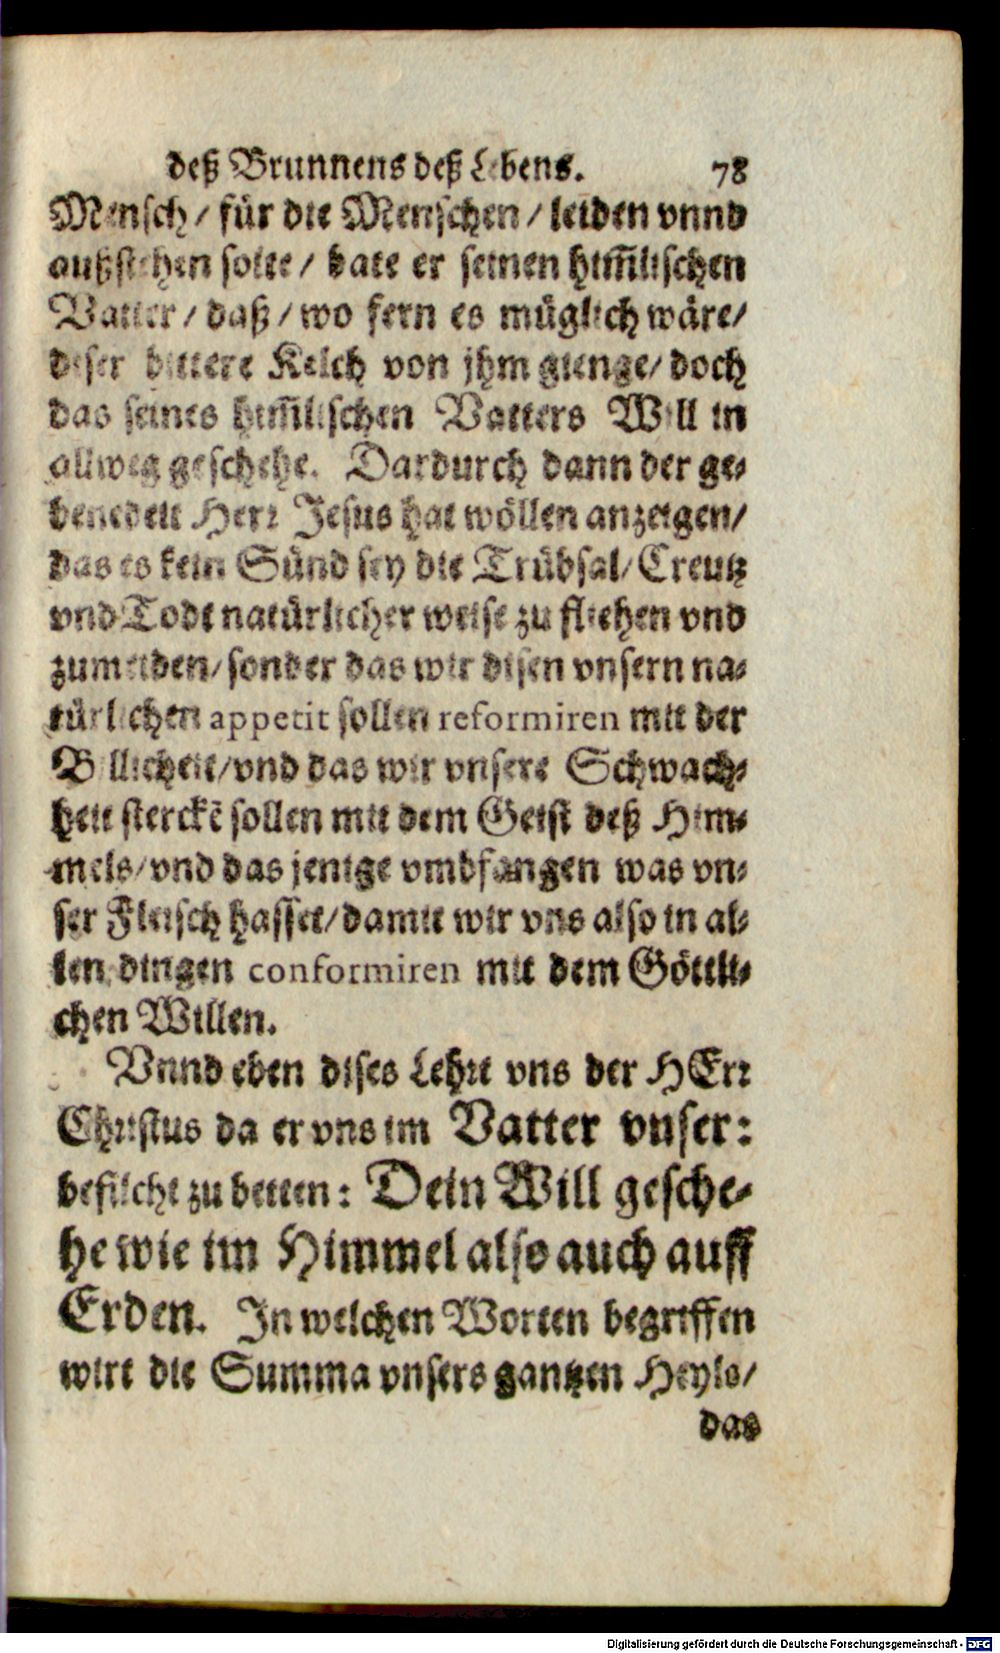 deß Brunnens deß Lebens. 78
Mensch / für die Menschen / leiden vnnd
außstehen solte / bate er seinen himlischen
Vatter / daß / wo fern es müglich wäre /
diser bittere Kelch von jhm gienge / doch
das seines himlischen Vatters Will in
allweg geschehe. Dardurch dann der ge-
benedeit Herr Jesus hat wöllen anzeigen /
das es kein Sünd sey die Trübsal / Creutz
vnd Todt natürlicher weise zu fliehen vnd
zumeiden / sonder das wir disen vnsern na-
türlichen appetit sollen reformiren mit der
Billicheit / vnd das wir vnsere Schwach-
heit sterckē sollen mit dem Geist deß Him-
mels / vnd das jenige vmbfangen was vn-
ser Fleisch hasset / damit wir vns also in al-
len dingen conformiren mit dem Göttli-
chen Willen.
Vnnd eben dises Lehrt vns der HErr
Christus da er vns im Vatter vnser:
befilcht zu betten: Dein Will gesche-
he wie im Himmel also auch auff
Erden. In welchen Worten begriffen
wirt die Summa vnsers gantzen Heyls /
das
Digitalisierung gefördert durch die Deutsche Forschungsgemeinschaft - DFG